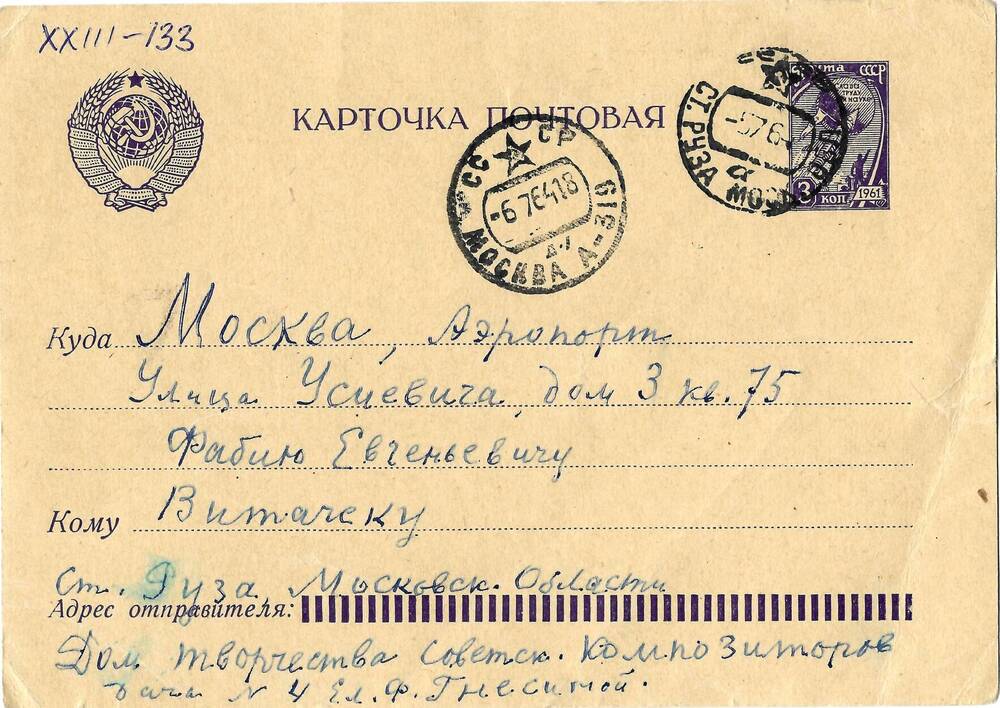 XXIII-133
КАРТОЧКА ПОЧТОВАЯ
Почта СССР
3 коп 1961
СТ. РУЗА МОСК
СССР
-6 7 64 18
МОСКВА А-319
Куда Москва, Аэропорт
Улица Усиевича, дом 3 кв. 75
Фабию Евгеньевичу
Кому Витачеку
Ст. Руза Московск. Области
Адрес отправителя:
Дом творчества Советск. Композиторов
дача N 4 Ел. Ф. Гнесиной.